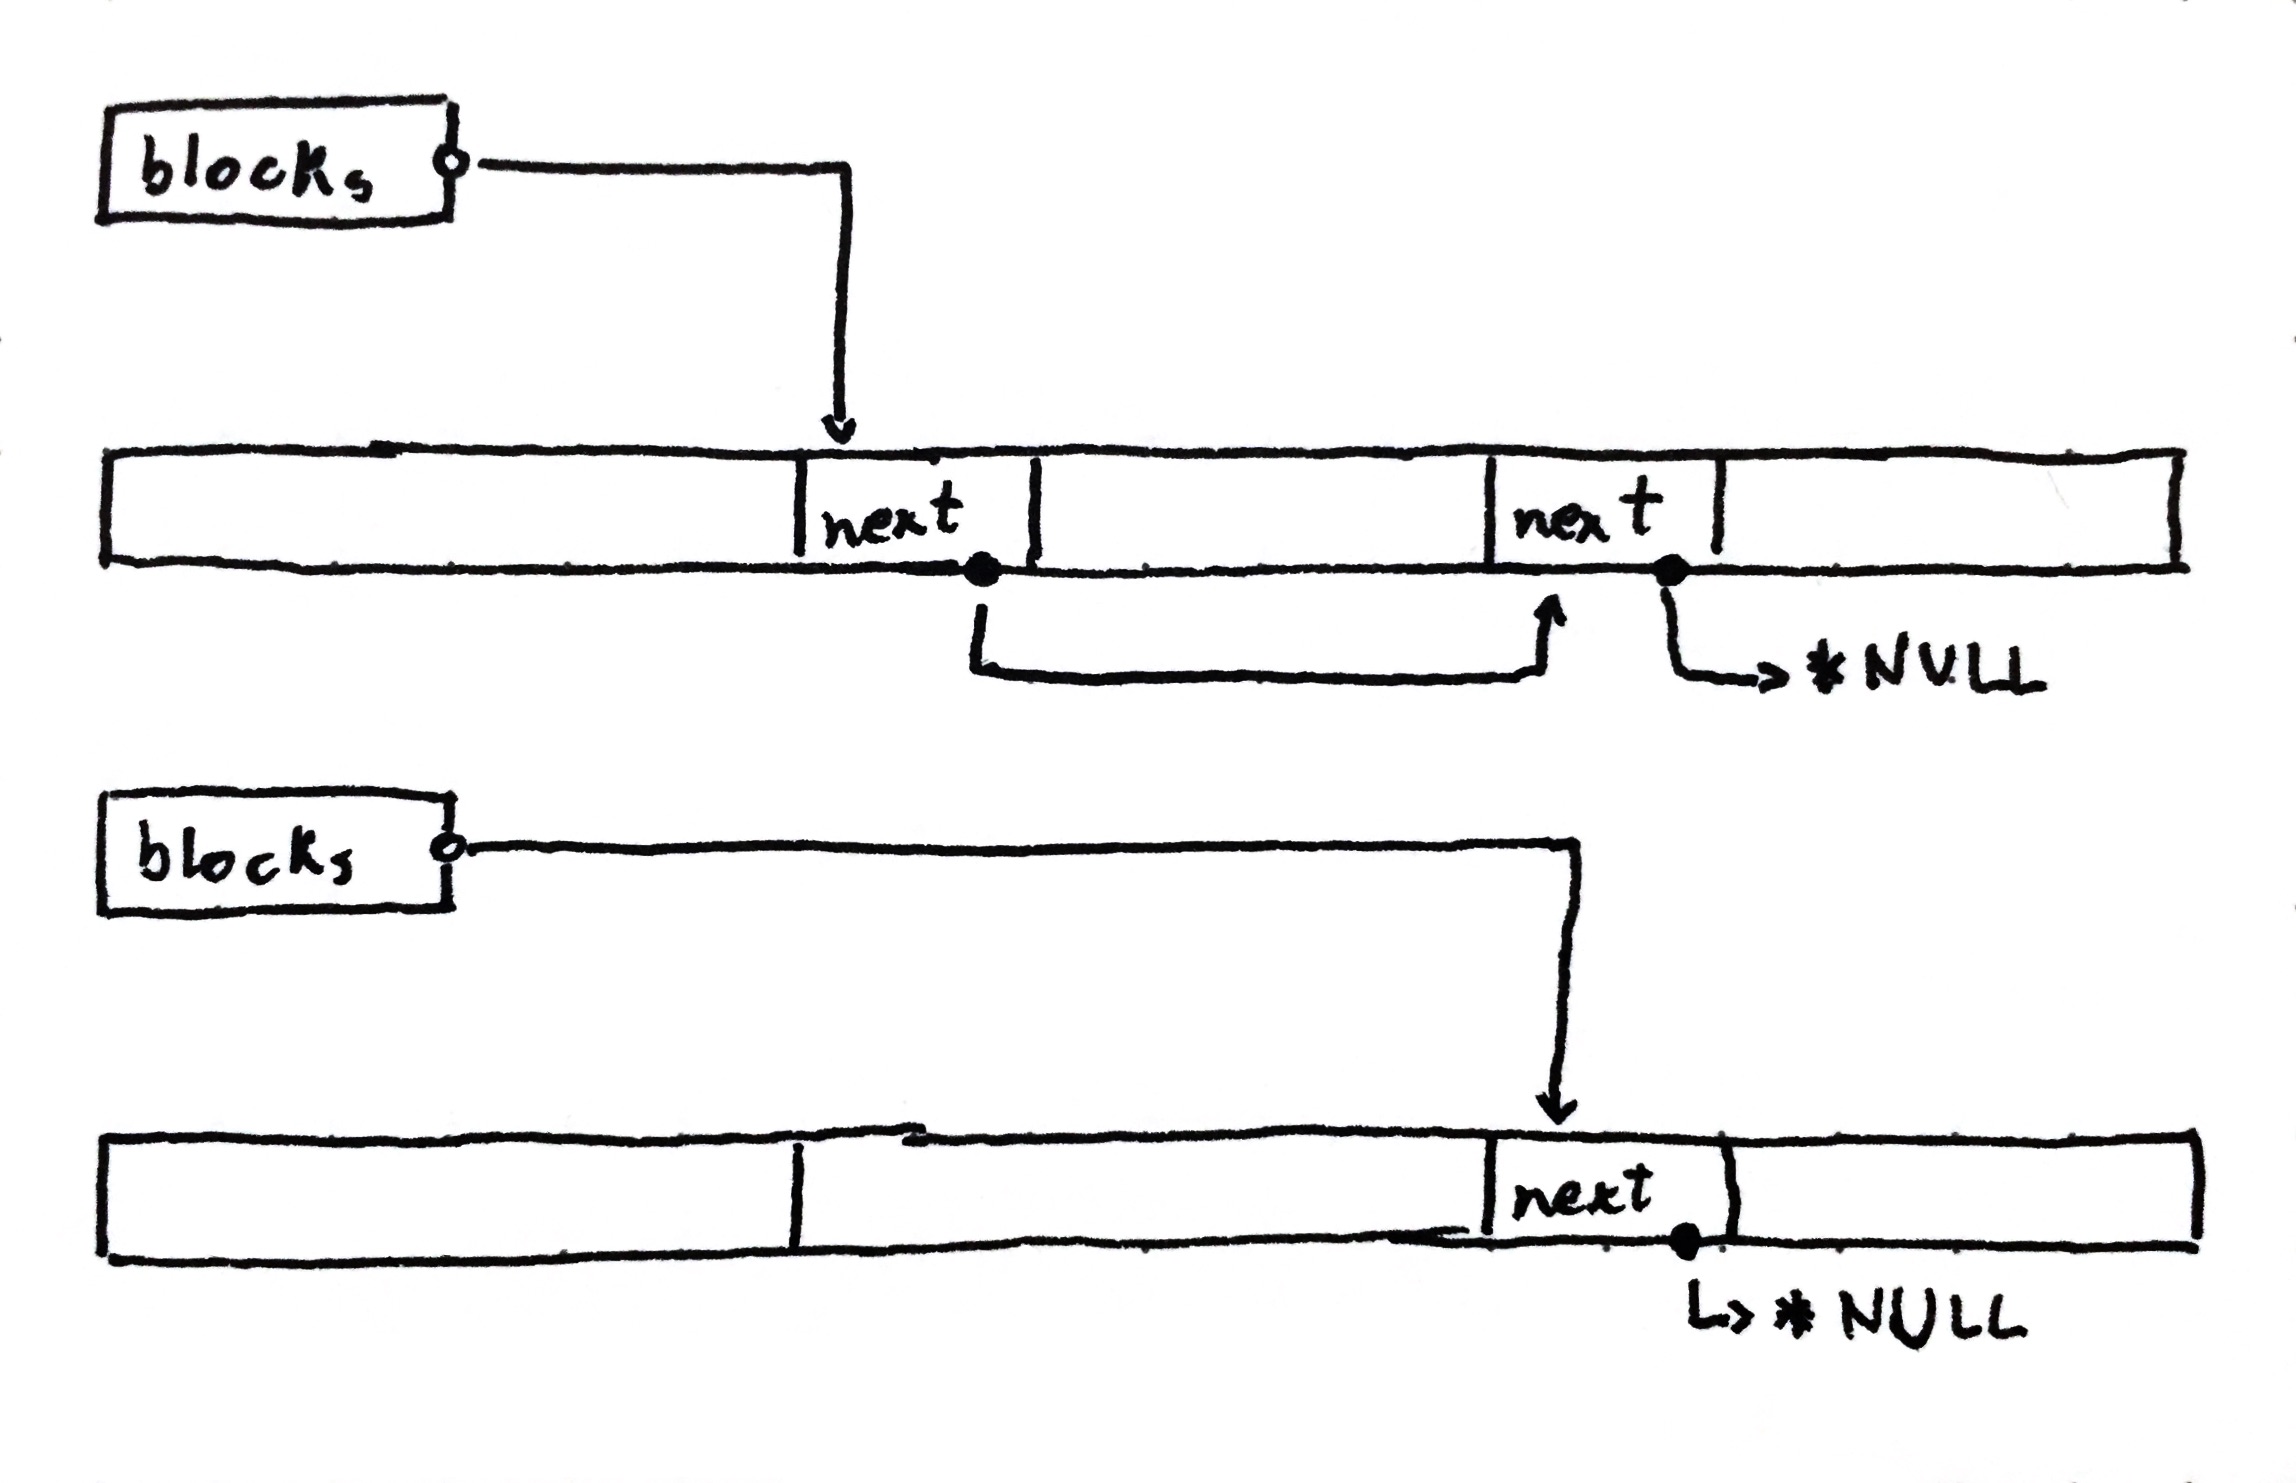 blocks
next next
*NULL
blocks
next
* NULL